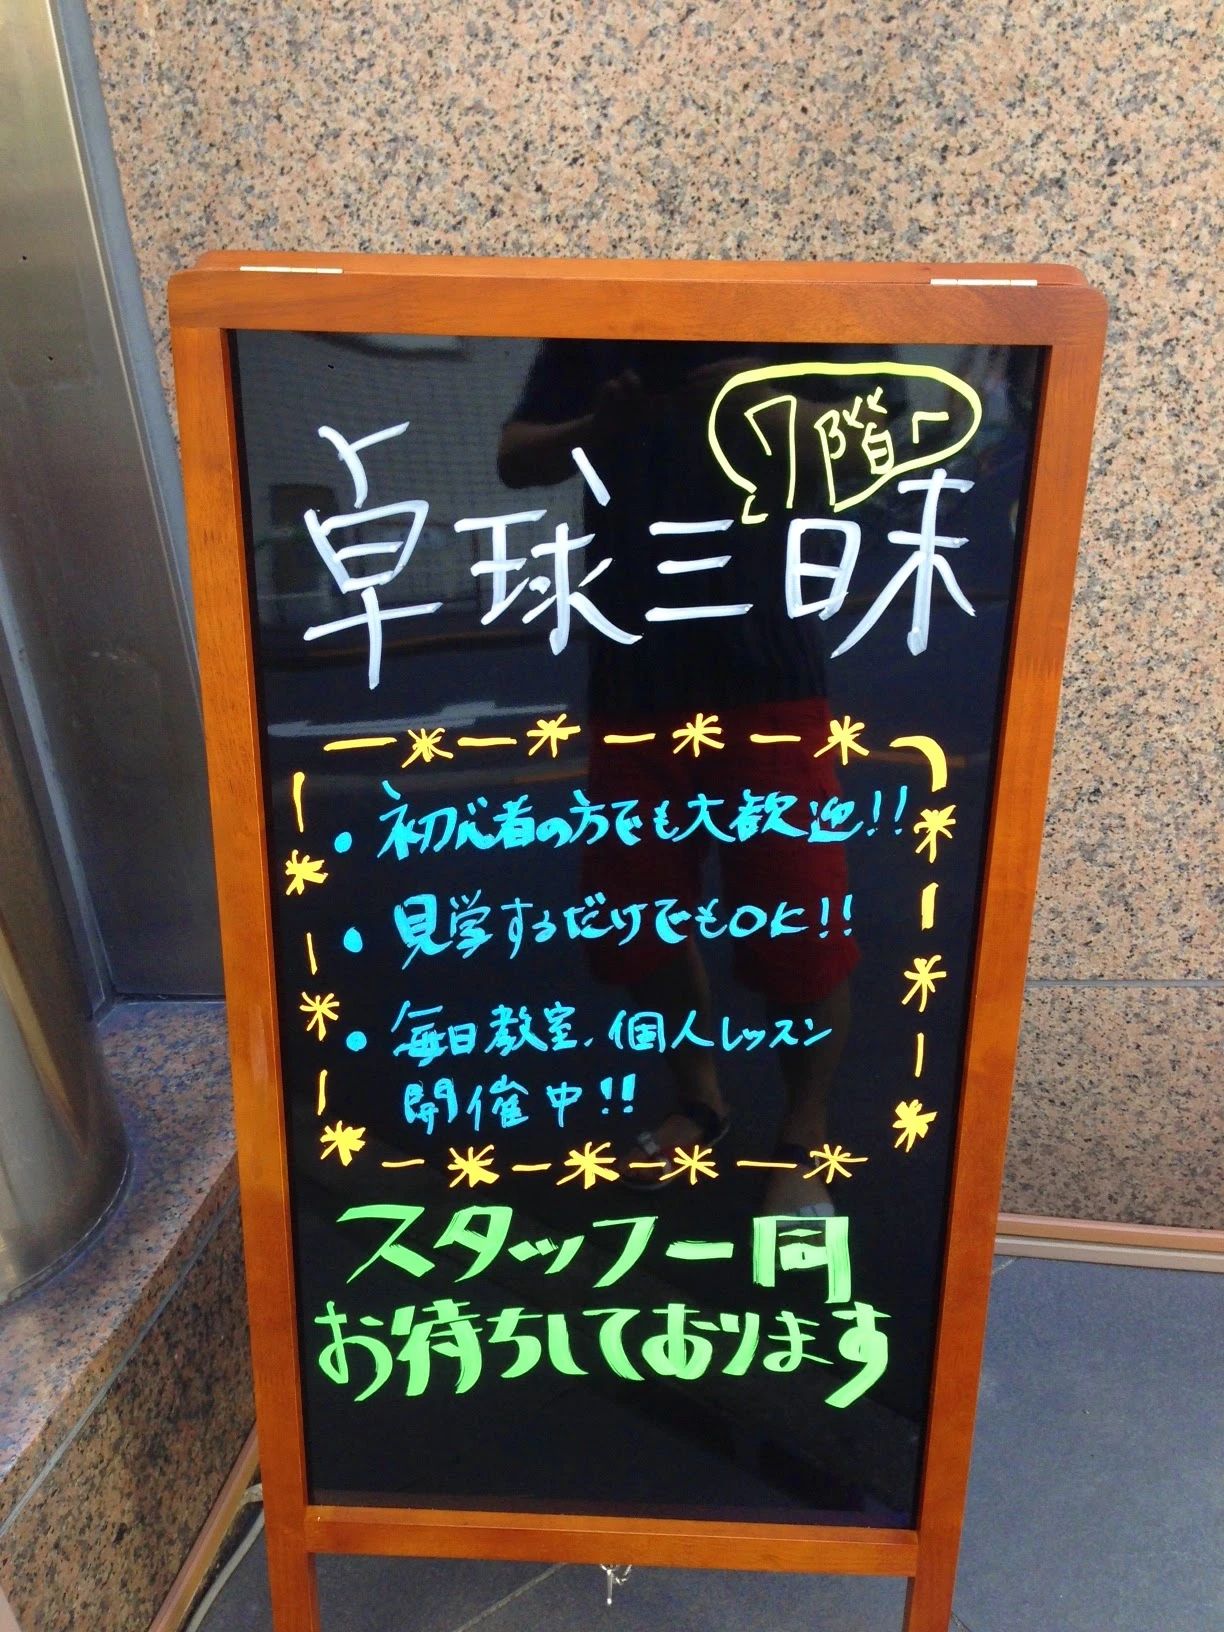 7階へ
卓球三昧
・初心者の方でも大歓迎!!
・見学するだけでもOK!!
・毎日教室、個人レッスン
開催中!!
スタッフ一同
お待ちしております